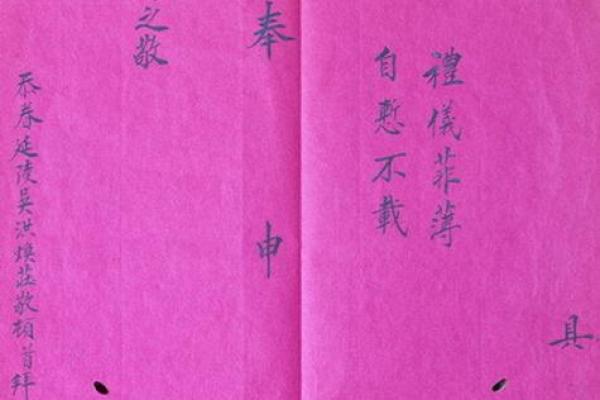 具
禮儀菲薄
自慙不載
奉申
之敬
忝眷延陵吳洪煥莊敬頓首拜